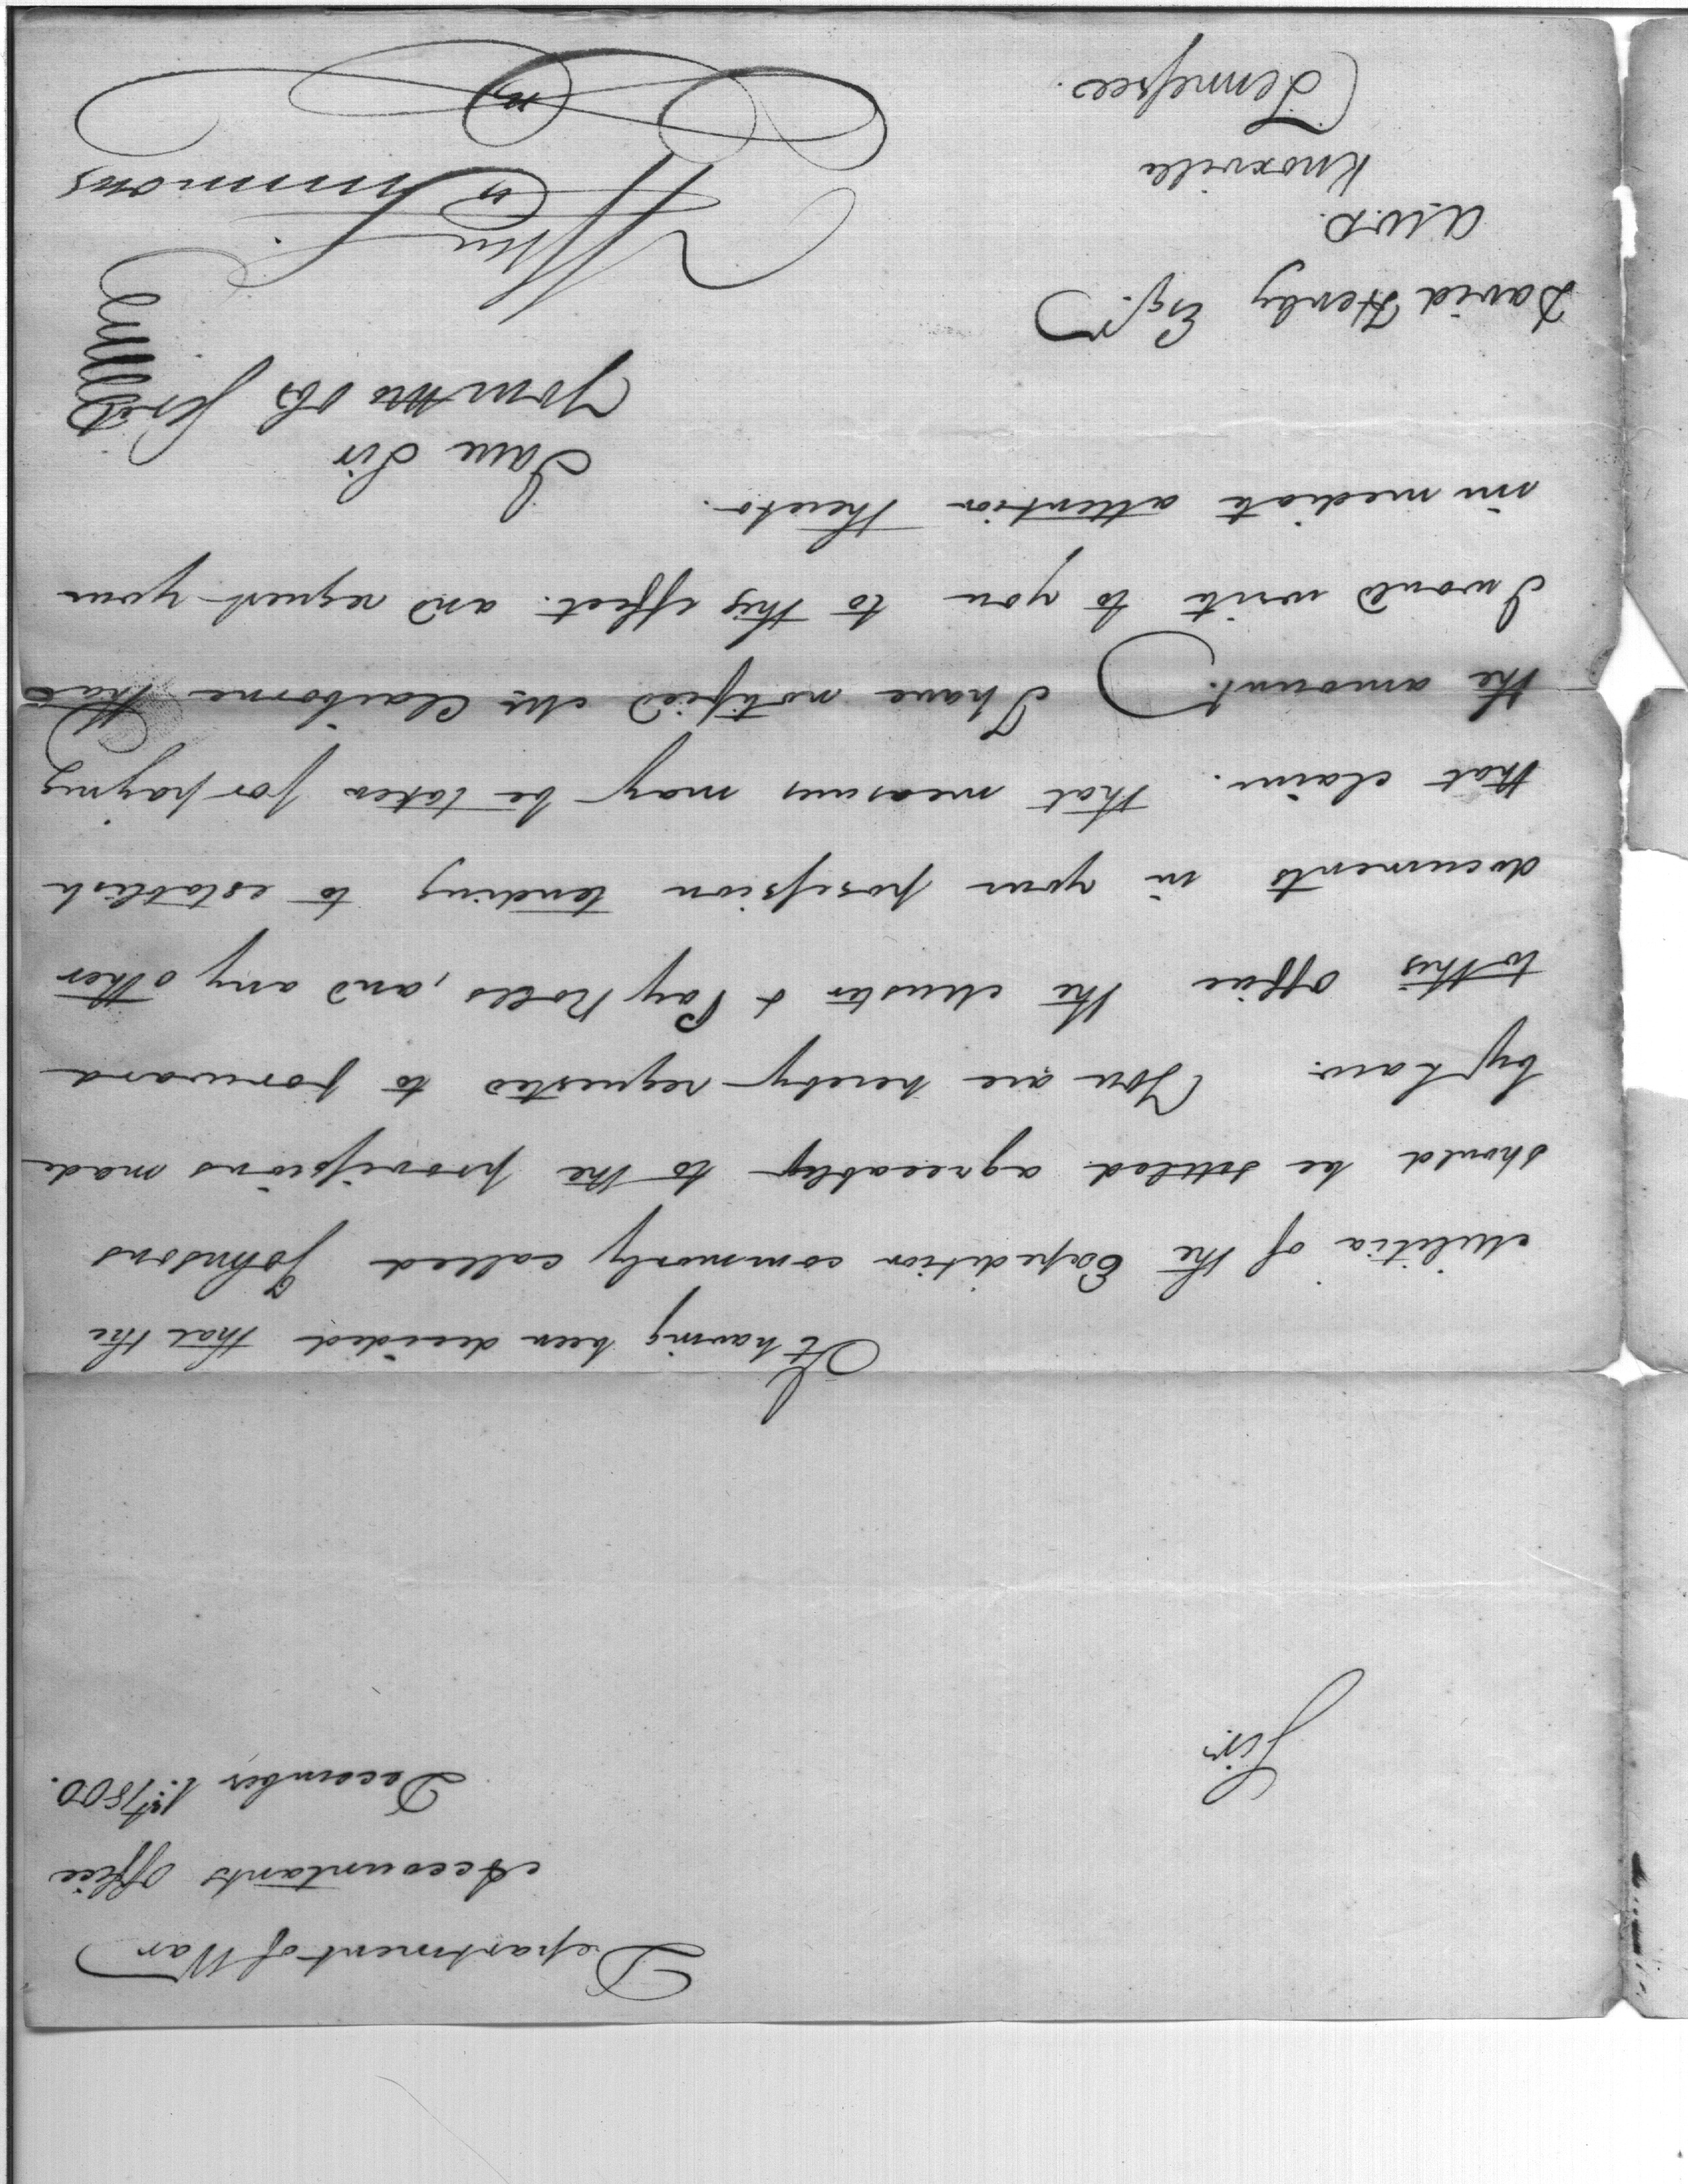 Department of War
Accountants Office
December 1st 1800.
Sir
It having been decided that the
Militia of the Expedition commonly called Johnsons
should be settled agreeably to the provissions made
by Law. You are hereby requested to forward
to this office the Muster & Pay Rolls, and any other
documents in your posession tending to establish
that claim. that measures may be taken for paying
the amount. I have notified Mr Claiborne that
I would write to you to this effect. and request your
immediate attention thereto.
I am Sir
Your Mo Obt Servt
Wm Simmons
David Henly Esqr.
A.W.D.
Knoxville
Tennessee.